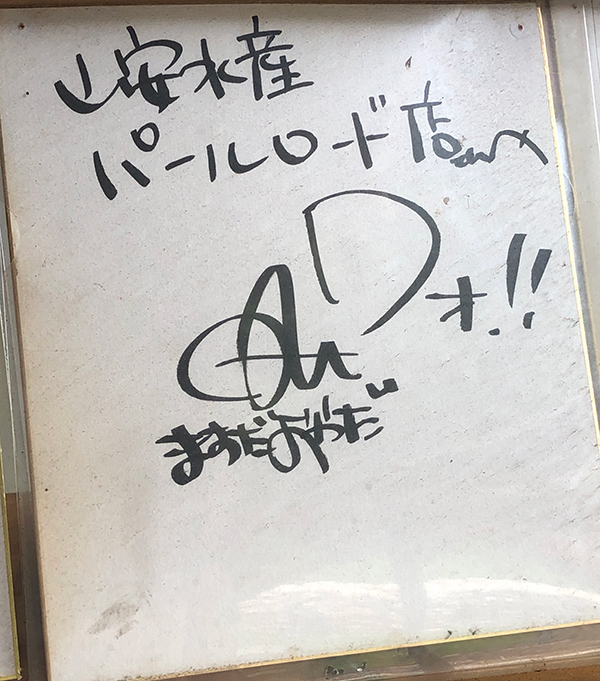 山安水産
パールロード店さんへ
ワオ!!
ますだおかだ